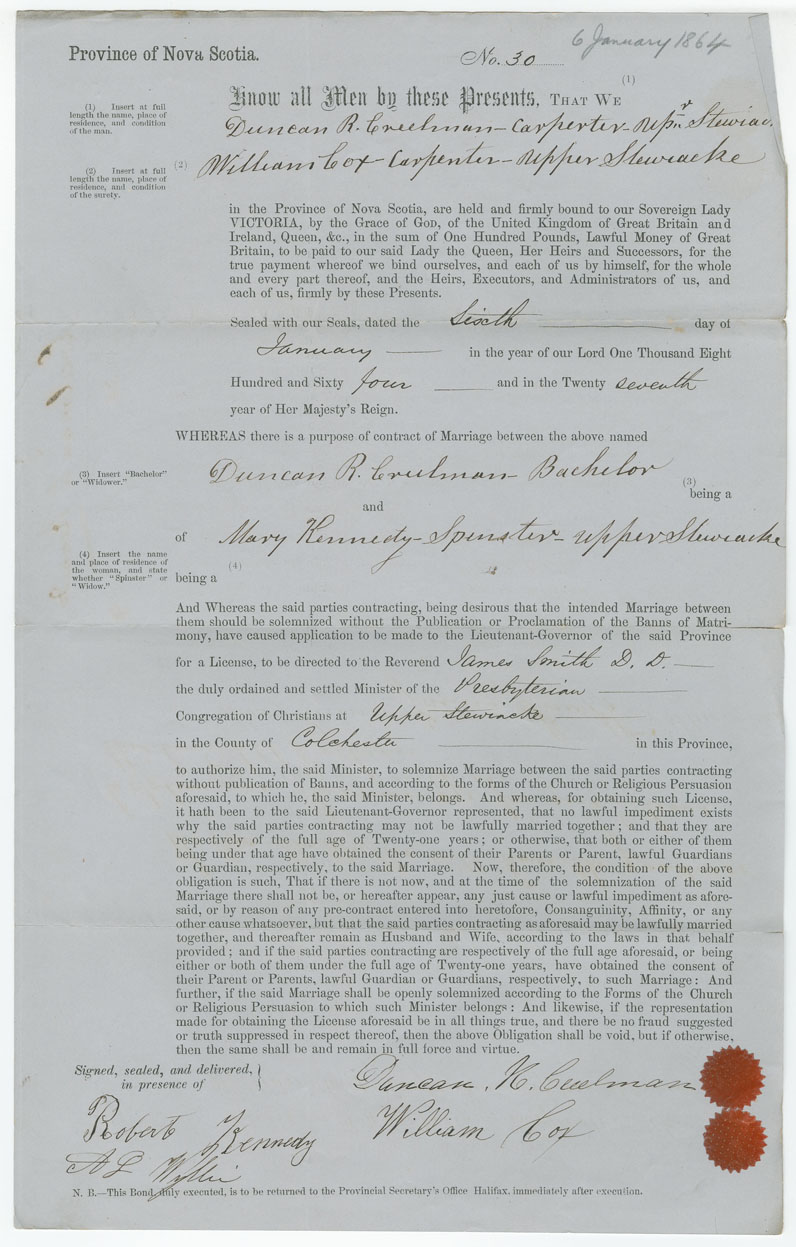 6 January 1864
Province of Nova Scotia.
No. 30
(1)
Know all Men by these Presents, THAT WE
(1) Insert at full
length the name, place of
residence, and condition
of the man.
Duncan R. Creelman - Carpenter - Upr Stewiac.
(2) William Cox - Carpenter - Upper Stewiacke
(2) Insert at full
length the name, place of
residence, and condition
of the surety.
in the Province of Nova Scotia, are held and firmly bound to our Sovereign Lady
VICTORIA, by the Grace of GOD, of the United Kingdom of Great Britain and
Ireland, Queen, &c., in the sum of One Hundred Pounds, Lawful Money of Great
Britain, to be paid to our said Lady the Queen, Her Heirs and Successors, for the
true payment whereof we bind ourselves, and each of us by himself, for the whole
and every part thereof, and the Heirs, Executors, and Administrators of us, and
each of us, firmly by these Presents.
Sealed with our Seals, dated the Sixth day of
January in the year of our Lord One Thousand Eight
Hundred and Sixty four and in the Twenty seventh
year of Her Majesty's Reign.
WHEREAS there is a purpose of contract of Marriage between the above named
(3) Insert "Bachelor"
or "Widower."
Duncan R. Creelman - Bachelor
(3)
being a
and
of Mary Kennedy - Spinster - Upper Stewiacke
(4) Insert the name
and place of residence of
the woman, and state
whether "Spinster" or
"Widow."
(4)
being a
And Whereas the said parties contracting, being desirous that the intended Marriage between
them should be solemnized without the Publication or Proclamation of the Banns of Matri-
mony, have caused application to be made to the Lieutenant-Governor of the said Province
for a License, to be directed to the Reverend James Smith D. D.
the duly ordained and settled Minister of the Presbyterian
Congregation of Christians at Upper Stewiacke
in the County of Colchester in this Province,
to authorize him, the said Minister, to solemnize Marriage between the said parties contracting
without publication of Banns, and according to the forms of the Church or Religious Persuasion
aforesaid, to which he, the said Minister, belongs. And whereas, for obtaining such License,
it hath been to the said Lieutenant-Governor represented, that no lawful impediment exists
why the said parties contracting may not be lawfully married together; and that they are
respectively of the full age of Twenty-one years; or otherwise, that both or either of them
being under that age have obtained the consent of their Parents or Parent, lawful Guardians
or Guardian, respectively, to the said Marriage. Now, therefore, the condition of the above
obligation is such, That if there is not now, and at the time of the solemnization of the said
Marriage there shall not be, or hereafter appear, any just cause or lawful impediment as afore-
said, or by reason of any pre-contract entered into heretofore, Consanguinity, Affinity, or any
other cause whatsoever, but that the said parties contracting as aforesaid may be lawfully married
together, and thereafter remain as Husband and Wife, according to the laws in that behalf
provided; and if the said parties contracting are respectively of the full age aforesaid, or being
either or both of them under the full age of Twenty-one years, have obtained the consent of
their Parent or Parents, lawful Guardian or Guardians, respectively, to such Marriage: And
further, if the said Marriage shall be openly solemnized according to the Forms of the Church
or Religious Persuasion to which such Minister belongs: And likewise, if the representation
made for obtaining the License aforesaid be in all things true, and there be no fraud suggested
or truth suppressed in respect thereof, then the above Obligation shall be void, but if otherwise,
then the same shall be and remain in full force and virtue.
Signed, sealed, and delivered,
in presence of
Duncan R. Creelman
Robert Kennedy
William Cox
A L Wyllie
N. B.—This Bond, duly executed, is to be returned to the Provincial Secretary's Office Halifax, immediately after execution.